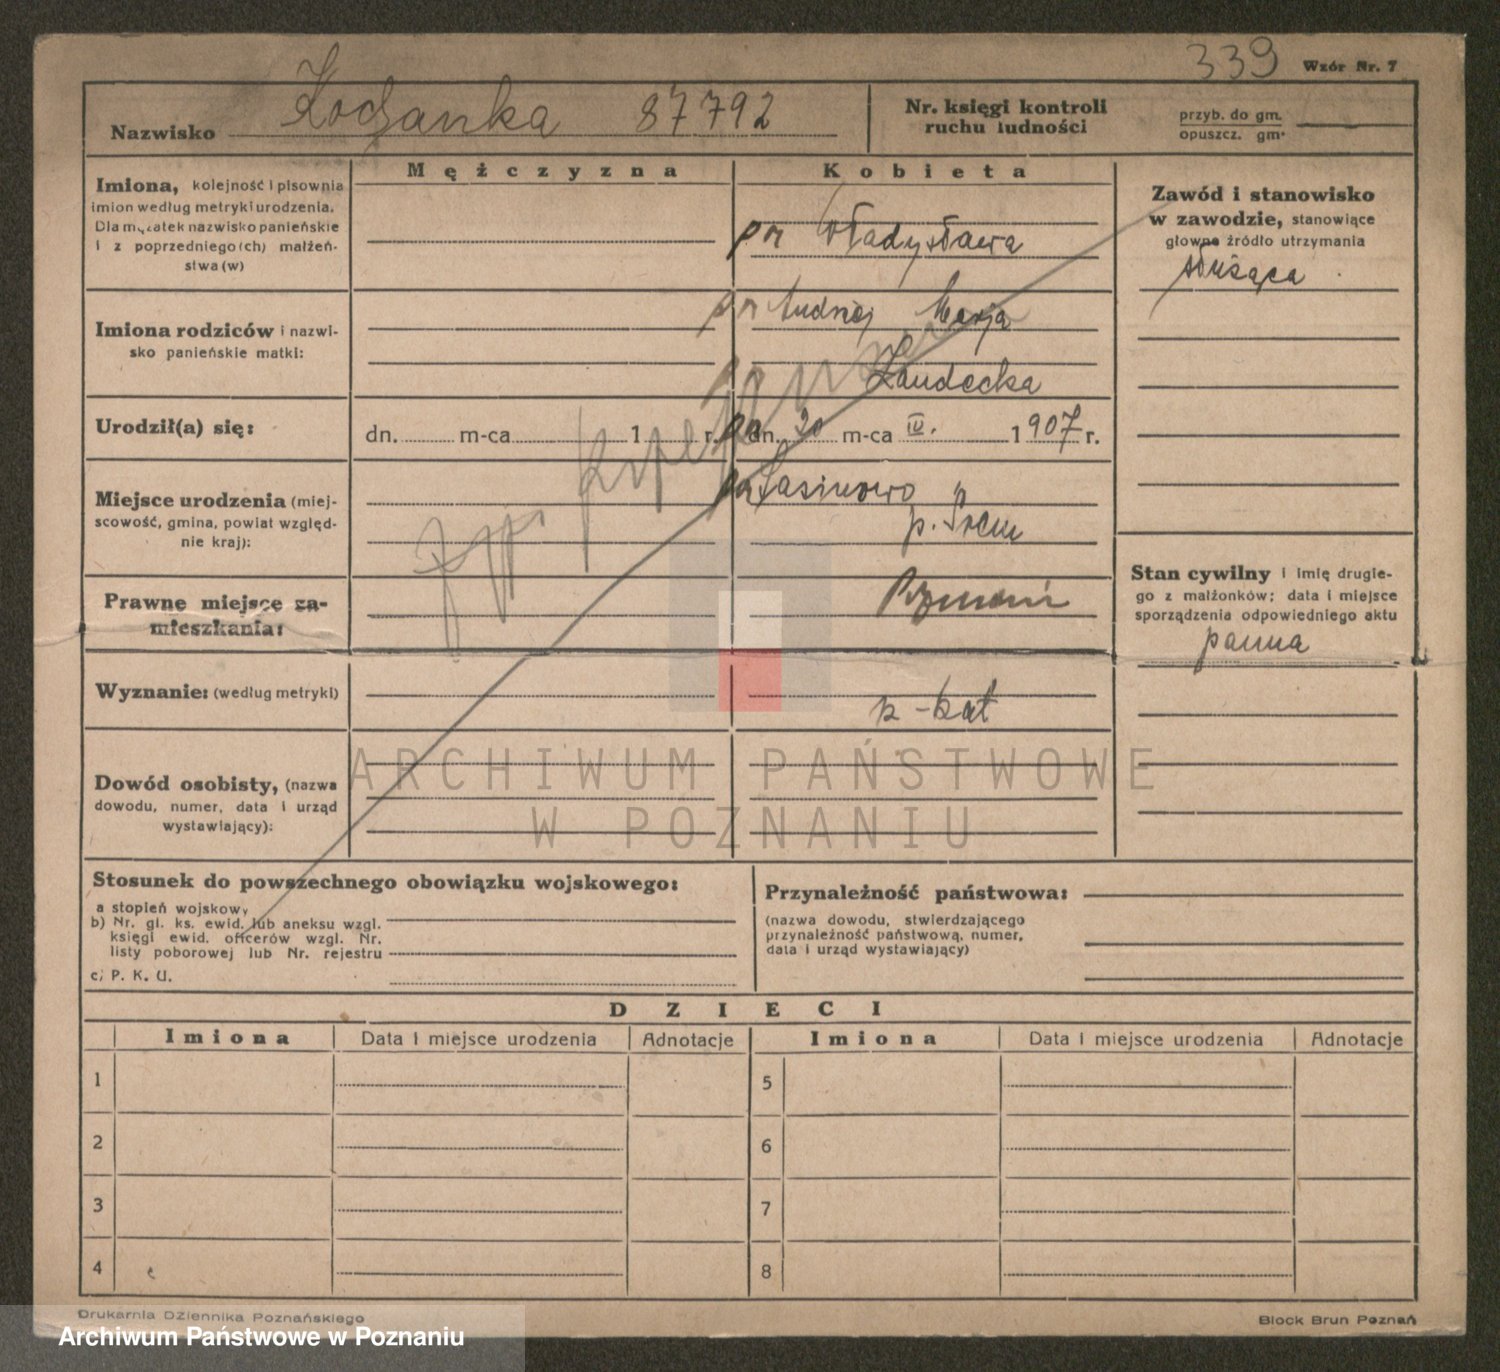 339 Wzór Nr. 7
Nazwisko Kochanka 87792
Nr. księgi kontroli
ruchu ludności
przyb. do gm.
opuszcz. gm.
Mężczyzna Kobieta
Imiona, kolejność i pisownia
imion według metryki urodzenia.
Dla mężatek nazwisko panieńskie
i z poprzedniego(ch) małżeń-
stwa(w)
pr Władysława
Zawód i stanowisko
w zawodzie, stanowiące
głowne źródło utrzymania
służąca
Imiona rodziców i nazwi-
sko panieńskie matki:
pr Andrzej Marja
Landecka
Urodził(a) się:
dn. m-ca 1 r.
dn. 20 m-ca IV. 1907 r.
Miejsce urodzenia (miej-
scowość, gmina, powiat względ-
nie kraj):
p. Śrem
Prawne miejsce za-
mieszkania:
Poznań
Stan cywilny i imię drugie-
go z małżonków; data i miejsce
sporządzenia odpowiedniego aktu
panna
Wyznanie: (według metryki)
r-kat
Dowód osobisty, (nazwa
dowodu, numer, data i urząd
wystawiający):
ARCHIWUM PAŃSTWOWE
W POZNANIU
Stosunek do powszechnego obowiązku wojskowego:
a stopień wojskowy
b) Nr. gł. ks. ewid. lub aneksu wzgl.
księgi ewid. oficerów wzgl. Nr.
listy poborowej lub Nr. rejestru
c) P. K. U.
Przynależność państwowa:
(nazwa dowodu, stwierdzającego
przynależność państwową, numer,
data i urząd wystawiający)
DZIECI
Imiona Data i miejsce urodzenia Adnotacje Imiona Data i miejsce urodzenia Adnotacje
1 5
2 6
3 7
4 8
Drukarnia Dziennika Poznańskiego
Block Brun Poznań
Archiwum Państwowe w Poznaniu